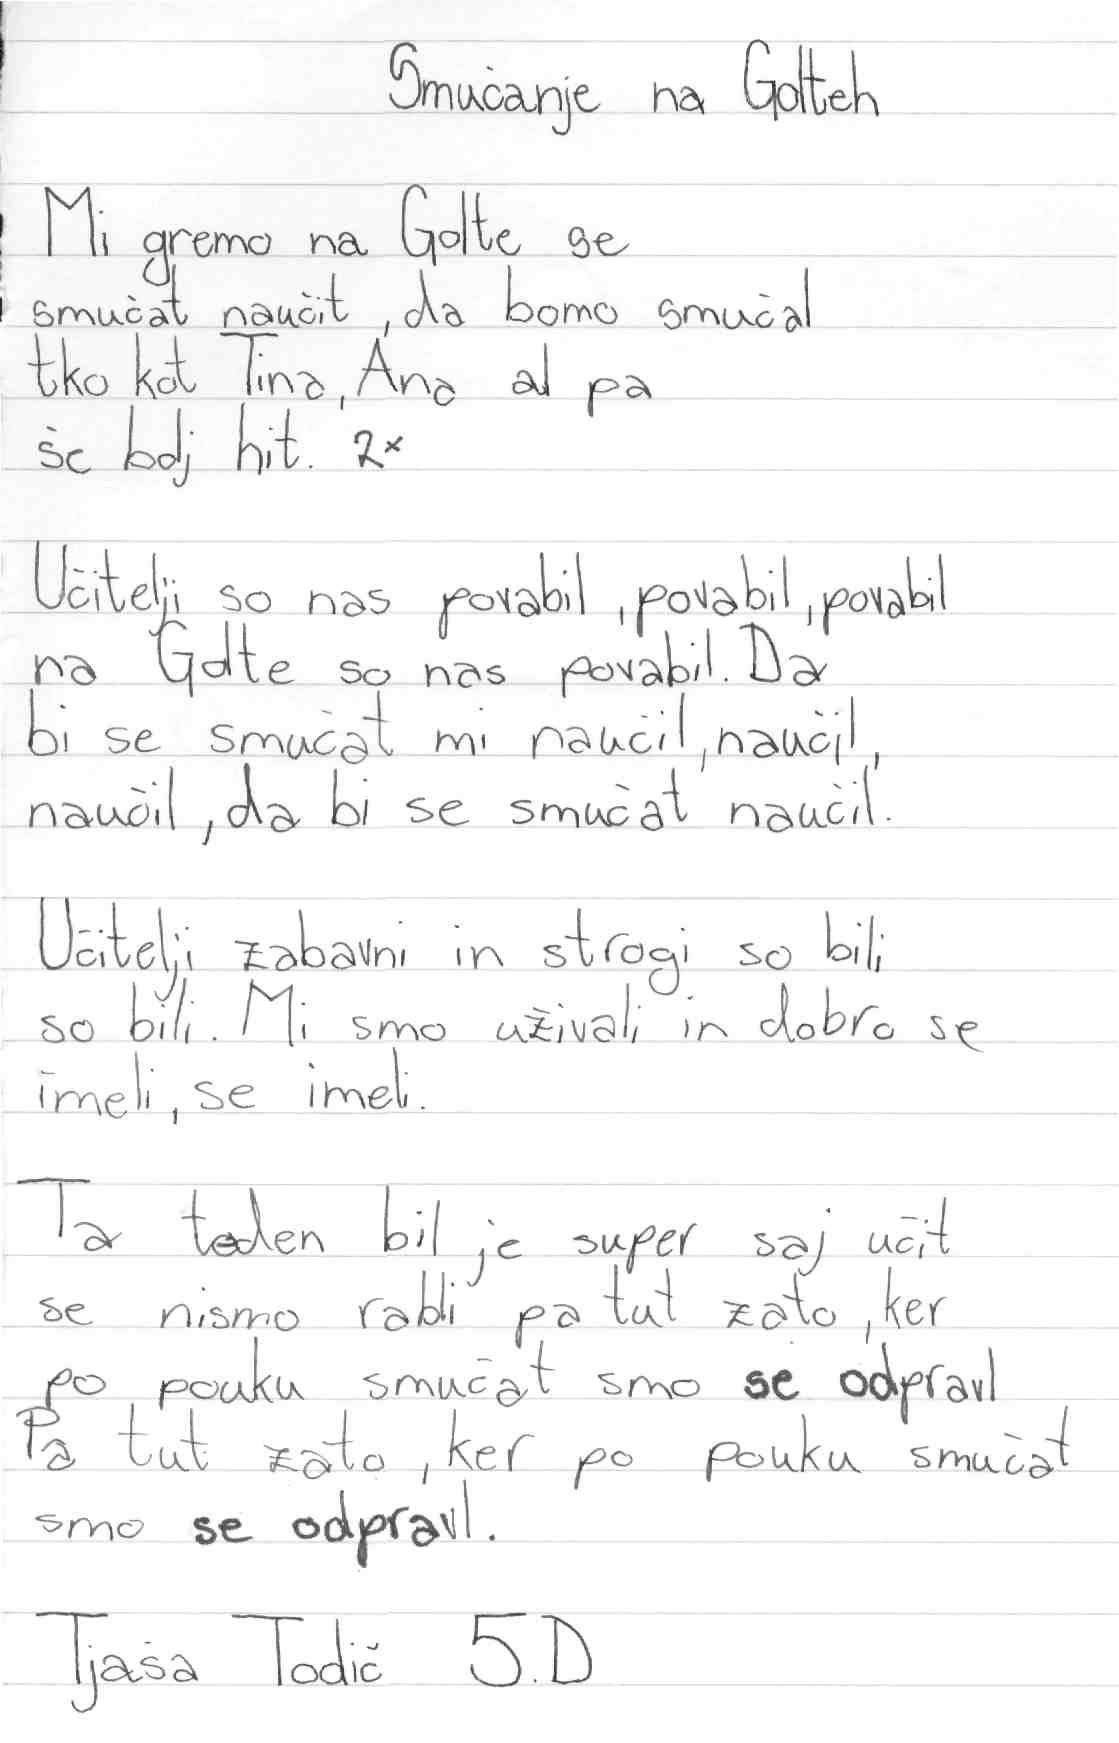 Smučanje na Golteh
Mi gremo na Golte se
smučat naučit, da bomo smučal
tko kot Tina, Ana al pa
še bolj hit. 2x
Učitelji so nas povabil, povabil, povabil
na Golte so nas povabil. Da
bi se smučat mi naučil, naučil,
naučil, da bi se smučat naučil.
Učitelji zabavni in strogi so bili
so bili. Mi smo uživali in dobro se
imeli, se imeli.
Ta teden bil je super saj učit
se nismo rabli pa tut zato, ker
po pouku smučat smo se odpravl
Pa tut zato, ker po pouku smučat
smo se odpravl.
Tjaša Todič 5.D